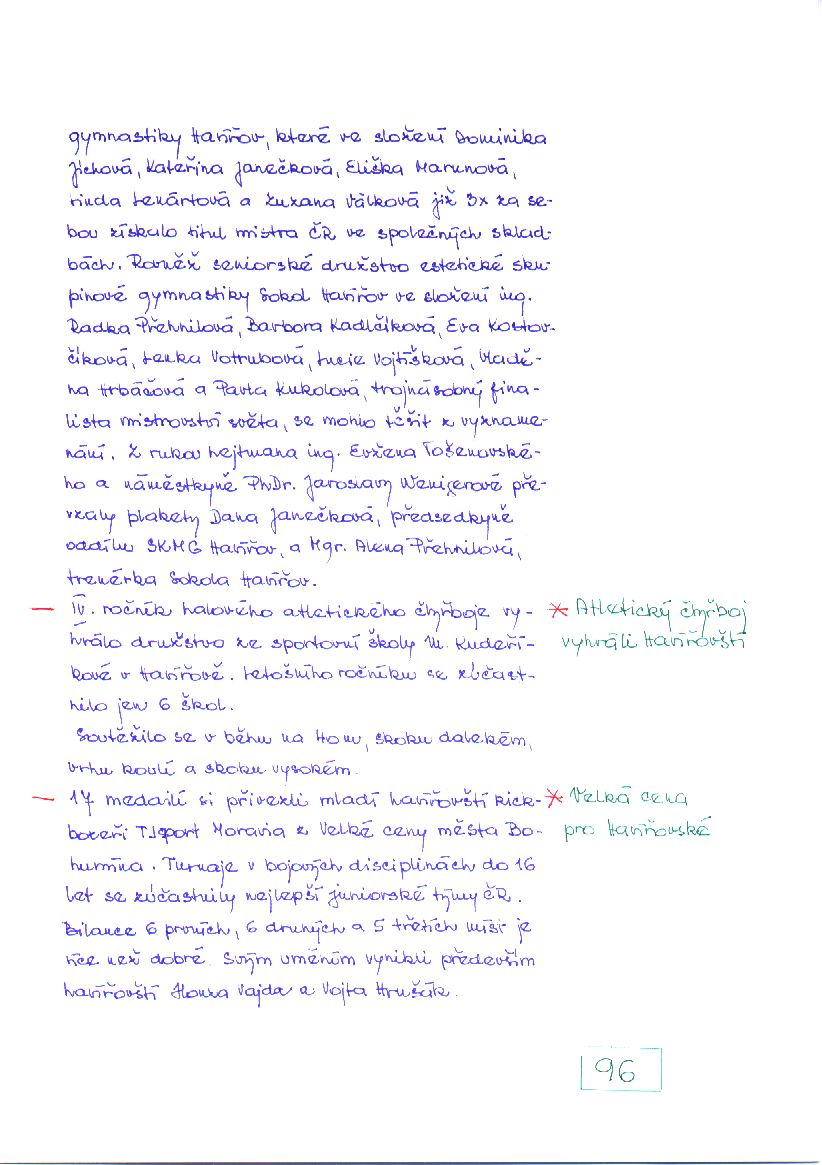 gymnastiky Havířov, které ve složení Dominika
Jichová, Kateřina Janečková, Eliška Marunová,
Linda Lenártová a Zuzana Válková již 3x za se-
bou získalo titul mistra ČR ve společných sklad-
bách. Rovněž seniorské družstvo estetické sku-
pinové gymnastiky Sokol Havířov ve složení ing.
Radka Přehnilová, Barbora Kadlčíková, Eva Kostov-
číková, Lenka Votrubová, Lucie Vojtíšková, Vladě-
na Hrbáčová a Pavla Kukolová, trojnásobný fina-
lista mistrovství světa, se mohlo těšit z vyzname-
nání. Z rukou hejtmana ing. Evžena Tošenovské-
ho a náměstkyně PhDr. Jaroslavy Wenigerové pře-
vzaly plakety Dana Janečková, předsedkyně
oddílu SKMG Havířov, a Mgr. Alena Přehnilová,
trenérka Sokola Havířov.
— IV. ročník halového atletického čtyřboje vy-
hrálo družstvo ze sportovní školy M. Kudeří-
kové v Havířově. Letošního ročníku se zúčast-
nilo jen 6 škol.
Soutěžilo se v běhu na 40 m, skoku dalekém,
vrhu koulí a skoku vysokém.
— 17 medailí si přivezli mladí havířovští kick-
boxeři TJ Sport Moravia z Velké ceny města Bo-
humína. Turnaje v bojových disciplinách do 16
let se zúčastnily nejlepší juniorské týmy ČR.
Bilance 6 prvných, 6 druhých a 5 třetích míst je
více než dobré. Svým uměním vynikli především
havířovští Honza Vajda a Vojta Hrušák.
* Atletický čtyřboj
vyhráli Havířovští
* Velká cena
pro Havířovské
96